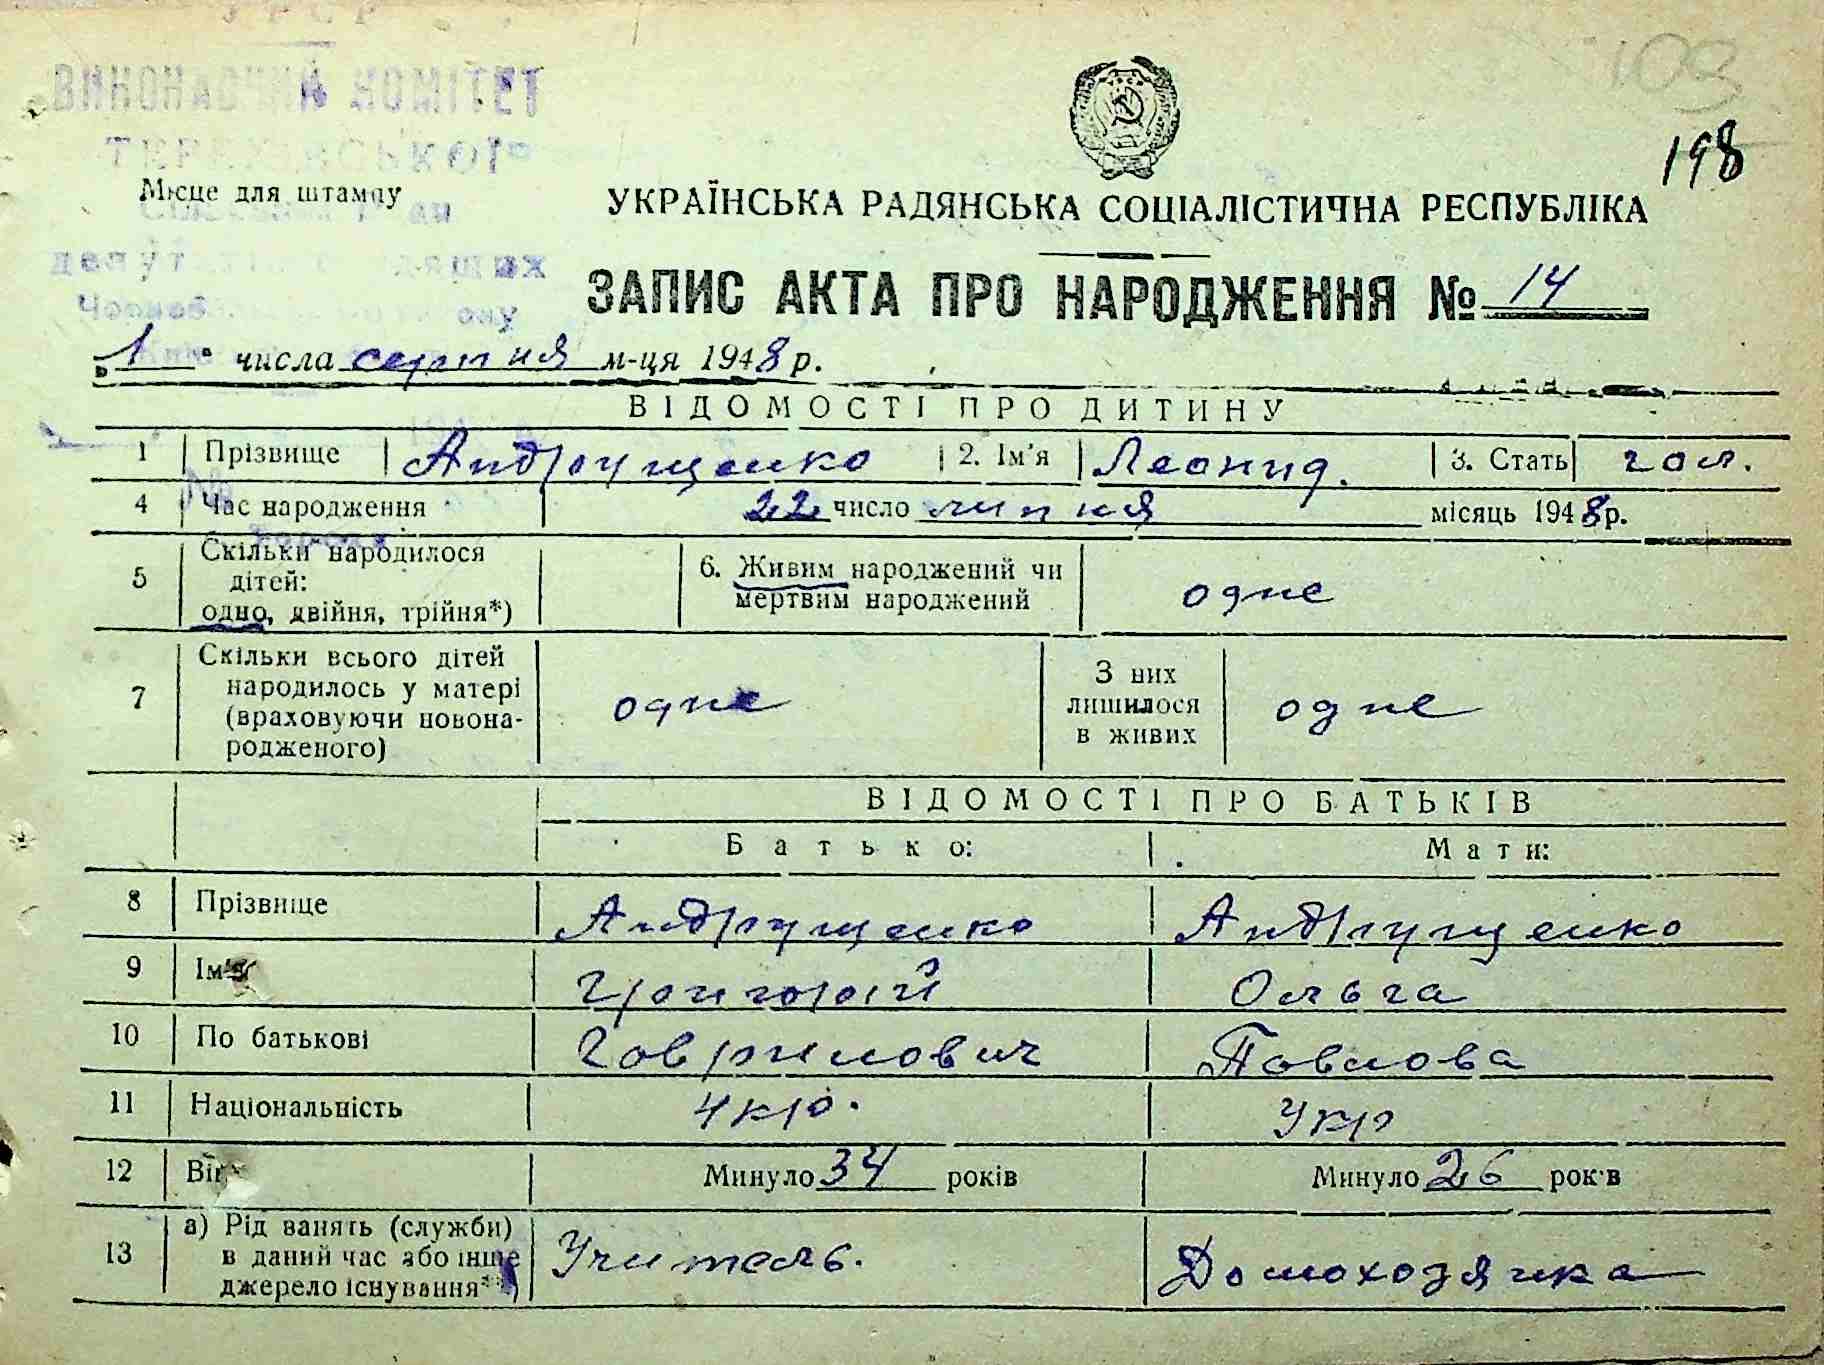 УРСР
ВИКОНАВЧИЙ КОМІТЕТ
109
198
Місце для штампу
УКРАЇНСЬКА РАДЯНСЬКА СОЦІАЛІСТИЧНА РЕСПУБЛІКА
ЗАПИС АКТА ПРО НАРОДЖЕННЯ № 14
„1“ числа серпня м-ця 1948 р.
ВІДОМОСТІ ПРО ДИТИНУ
1 Прізвище Андрущенко 2. Ім'я Леонид. 3. Стать чол.
4 Час народження 22 число липня місяць 1948 р.
5 Скільки народилося дітей: одно, двійня, трійня*) 6. Живим народжений чи мертвим народжений одне
7 Скільки всього дітей народилось у матері (враховуючи новонародженого) одне З них лишилося в живих одне
ВІДОМОСТІ ПРО БАТЬКІВ
Батько: Мати:
8 Прізвище Андрущенко Андрущенко
9 Ім'я Григорій Ольга
10 По батькові Гаврилович Павлова
11 Національність Укр. Укр
12 Вік Минуло 34 років Минуло 26 років
13 а) Рід занять (служби) в даний час або інше джерело існування**) Учитель. Домоходячка